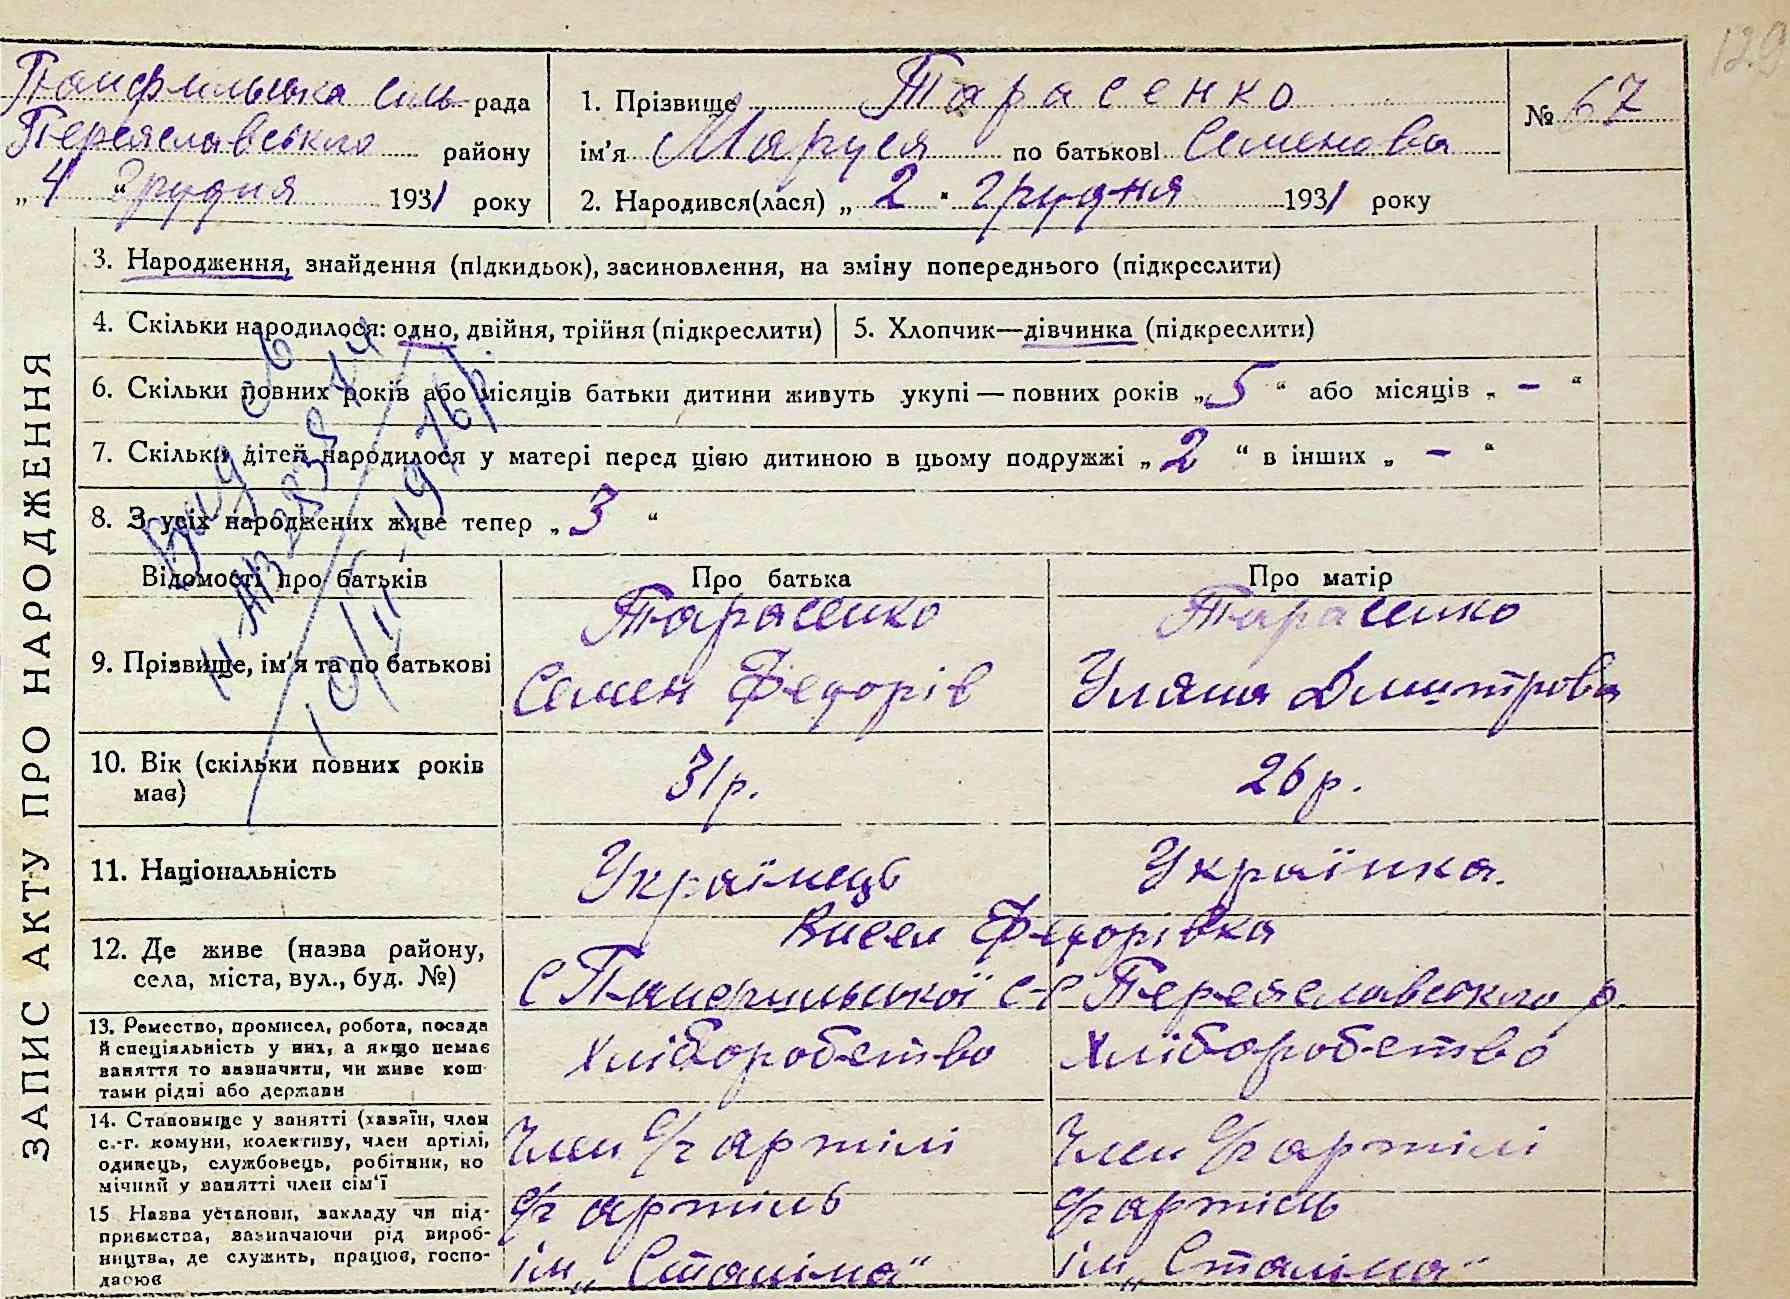 129
Панфильська сіль рада
Переяславського району
„4“ Грудня 1931 року
1. Прізвище Тарасенко
ім'я Маруся по батькові Семенова
2. Народився(лася) „2" Грудня 1931 року
№ 67
ЗАПИС АКТУ ПРО НАРОДЖЕННЯ
3. Народження, знайдення (підкидьок), засиновлення, на зміну попереднього (підкреслити)
4. Скільки народилося: одно, двійня, трійня (підкреслити)
5. Хлопчик—дівчинка (підкреслити)
6. Скільки повних років або місяців батьки дитини живуть укупі — повних років „5“ або місяців „-“
7. Скільки дітей народилося у матері перед цією дитиною в цьому подружжі „2“ в інших „-“
8. З усіх народжених живе тепер „3“
Відомості про батьків
Про батька
Про матір
9. Прізвище, ім'я та по батькові
Тарасенко
Семен Федорів
Тарасенко
Уляна Дмитрова
10. Вік (скільки повних років
має)
31 р.
26 р.
11. Національність
Українець
Українка.
12. Де живе (назва району,
села, міста, вул., буд. №)
Висел Федорівка
с Панфильської с-с Переяславського р.
13. Ремество, промисел, робота, посада
й спеціяльність у них, а якщо немає
заняття то зазначити, чи живе кош-
тами рідні або держави
Хліборобство
Хліборобство
14. Становище у занятті (хазяїн, член
с.-г. комуни, колективу, член артілі,
одинець, службовець, робітник, по
мічний у занятті член сім'ї
Член с/г артілі
Член с/г артілі
15 Назва установи, закладу чи під-
приємства, зазначаючи рід вироб-
ництва, де служить, працює, госпо-
дарює
с/г артіль
ім „Сталіна"
с/г артіль
ім „Сталіна"